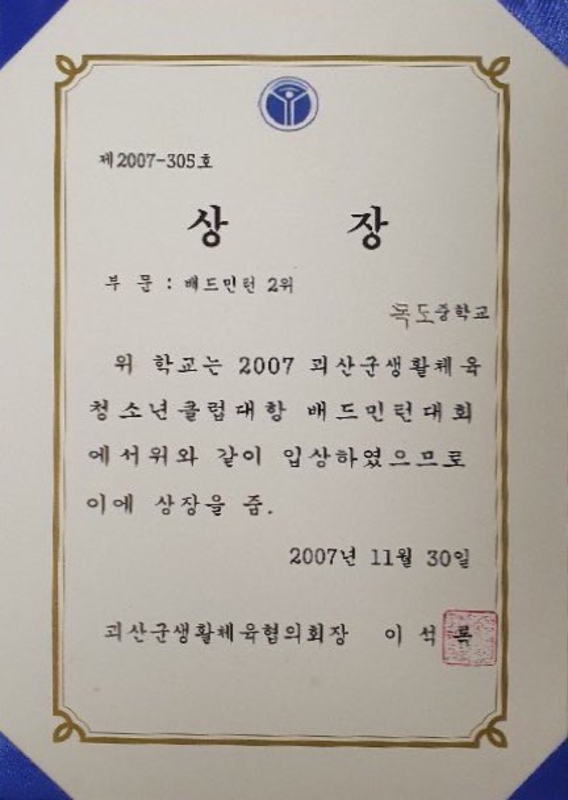 제2007-305호
상 장
부 문 : 배드민턴 2위
목도중학교
위 학교는 2007 괴산군생활체육
청소년클럽대항 배드민턴대회
에서위와 같이 입상하였으므로
이에 상장을 줌.
2007년 11월 30일
괴산군생활체육협의회장 이 석